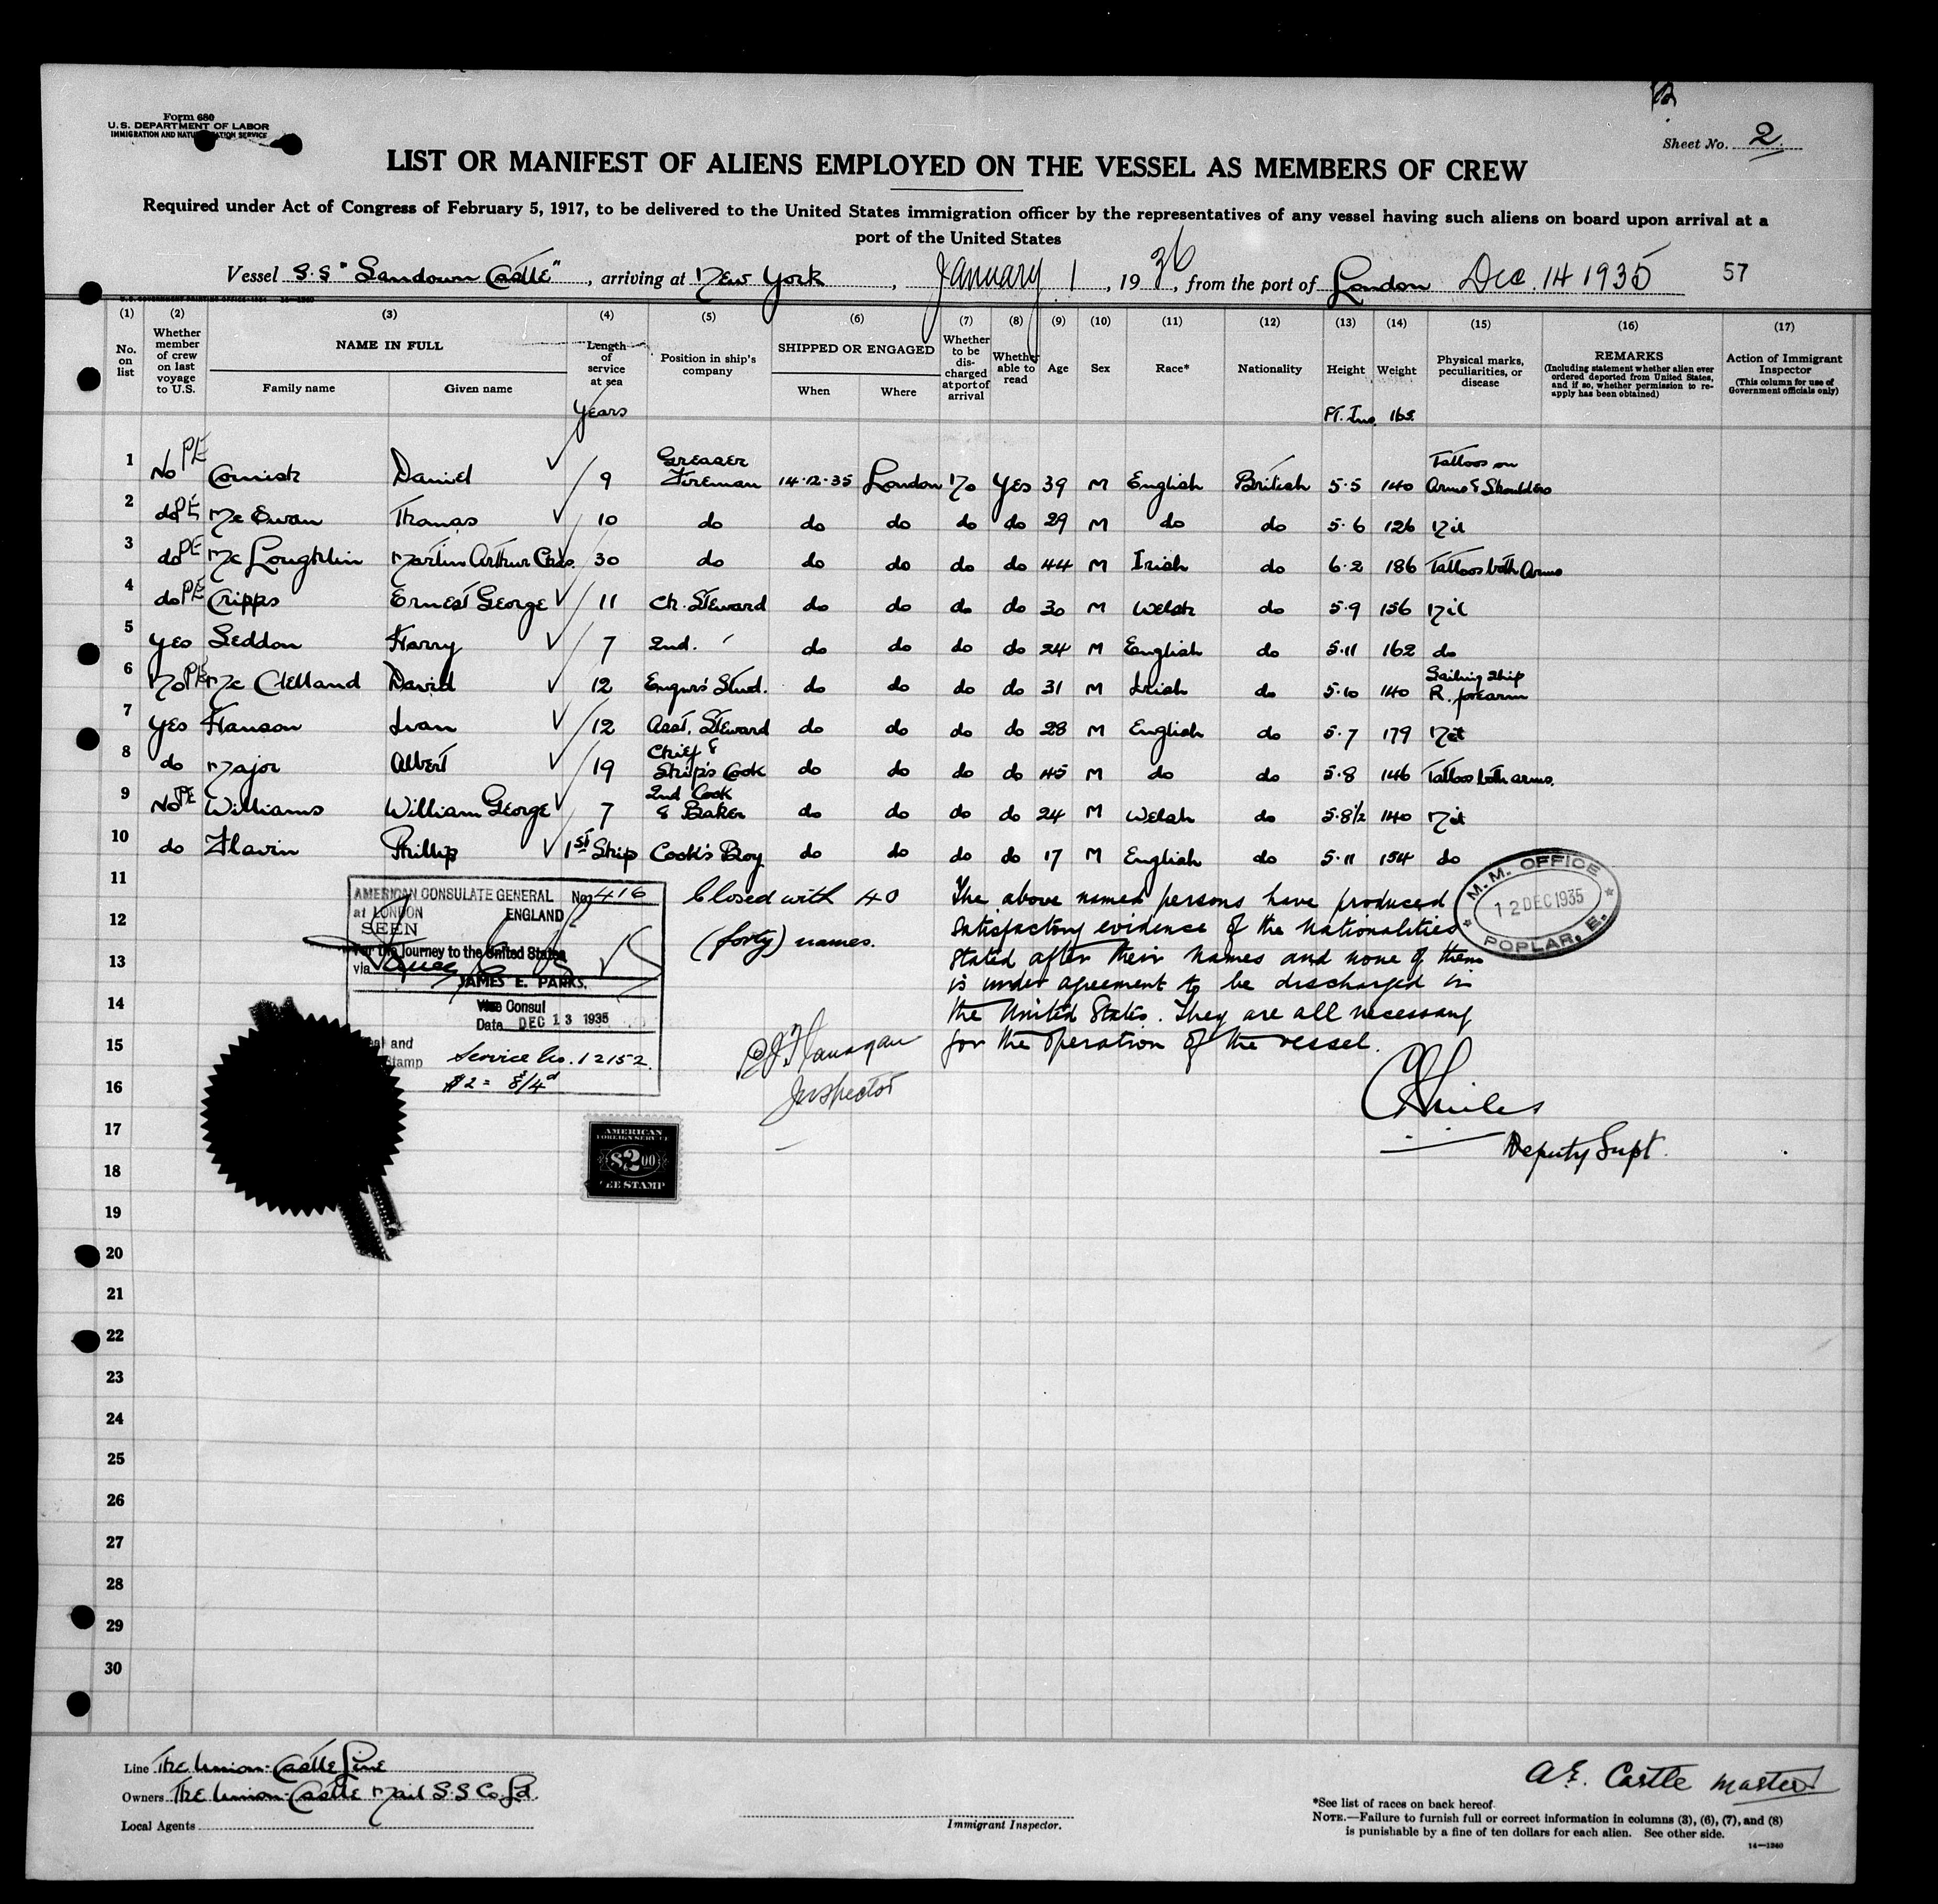 Form 680
U.S. DEPARTMENT OF LABOR
IMMIGRATION AND NATURALIZATION SERVICE
Sheet No. 2.
LIST OR MANIFEST OF ALIENS EMPLOYED ON THE VESSEL AS MEMBERS OF CREW
Required under Act of Congress of February 5, 1917, to be delivered to the United States immigration officer by the representatives of any vessel having such aliens on board upon arrival at a
port of the United States
Vessel S.S "Sandown Castle", arriving at New York, January 1, 1936, from the port of London Dec. 14 1935 57
(1) (2) (3) (4) (5) (6) (7) (8) (9) (10) (11) (12) (13) (14) (15) (16) (17)
No. on list
Whether member of crew on last voyage to U.S.
NAME IN FULL
Family name Given name
Length of service at sea
Years
Position in ship's company
SHIPPED OR ENGAGED
When Where
Whether to be discharged at port of arrival
Whether able to read
Age Sex Race* Nationality
Height Ft. Ins.
Weight lbs.
Physical marks, peculiarities, or disease
REMARKS
(Including statement whether alien ever ordered deported from United States, and if so, whether permission to reapply has been obtained)
Action of Immigrant Inspector
(This column for use of Government officials only)
1 No PE Cornish Daniel 9 Greaser Fireman 14.12.35 London No Yes 39 M English British 5.5 140 Tattoos on Arms & Shoulders
2 do PE Mc Ewan Thomas 10 do do do do do 29 M do do 5.6 126 Nil
3 do PE Mc Loughlin Martin Arthur Chas. 30 do do do do do 44 M Irish do 6.2 186 Tattoos both Arms
4 do PE Cripps Ernest George 11 Ch. Steward do do do do 30 M Welsh do 5.9 156 Nil
5 Yes Seddon Harry 7 2nd. " do do do do 24 M English do 5.11 162 do
6 No PE Mc Clelland David 12 Engrs' Stwd. do do do do 31 M Irish do 5.10 140 Sailing Ship R. forearm
7 Yes Hanson Ivan 12 Asst. Steward do do do do 28 M English do 5.7 179 Nil
8 do Major Albert 19 Chief & Ship's Cook do do do do 45 M do do 5.8 146 Tattoos both arms.
9 No PE Williams William George 7 2nd Cook & Baker do do do do 24 M Welsh do 5.8½ 140 Nil
10 do Flavin Phillip 1st Ship Cook's Boy do do do do 17 M English do 5.11 154 do
11
12
13
14
15
16
17
18
19
20
21
22
23
24
25
26
27
28
29
30
AMERICAN CONSULATE GENERAL No. 416
at LONDON ENGLAND
SEEN
For the Journey to the United States
via
JAMES E. PARKS.
Vice Consul
Date DEC 13 1935
Seal and
Stamp
Service No. 12152.
$2 = 8/4d
Closed with 40
(forty) names.
The above named persons have produced
satisfactory evidence of the nationalities
stated after their names and none of them
is under agreement to be discharged in
the United States. They are all necessary
for the operation of the vessel.
M.M. OFFICE
12 DEC 1935
POPLAR, E.
Flanagan
Inspector
Deputy Supt.
AMERICAN
FOREIGN SERVICE
$2.00
FEE STAMP
Line The Union-Castle Line
Owners The Union-Castle Mail S.S Co. Ld.
Local Agents
Immigrant Inspector.
A.E. Castle Master
*See list of races on back hereof
NOTE.—Failure to furnish full or correct information in columns (3), (6), (7), and (8)
is punishable by a fine of ten dollars for each alien. See other side.
14—1240